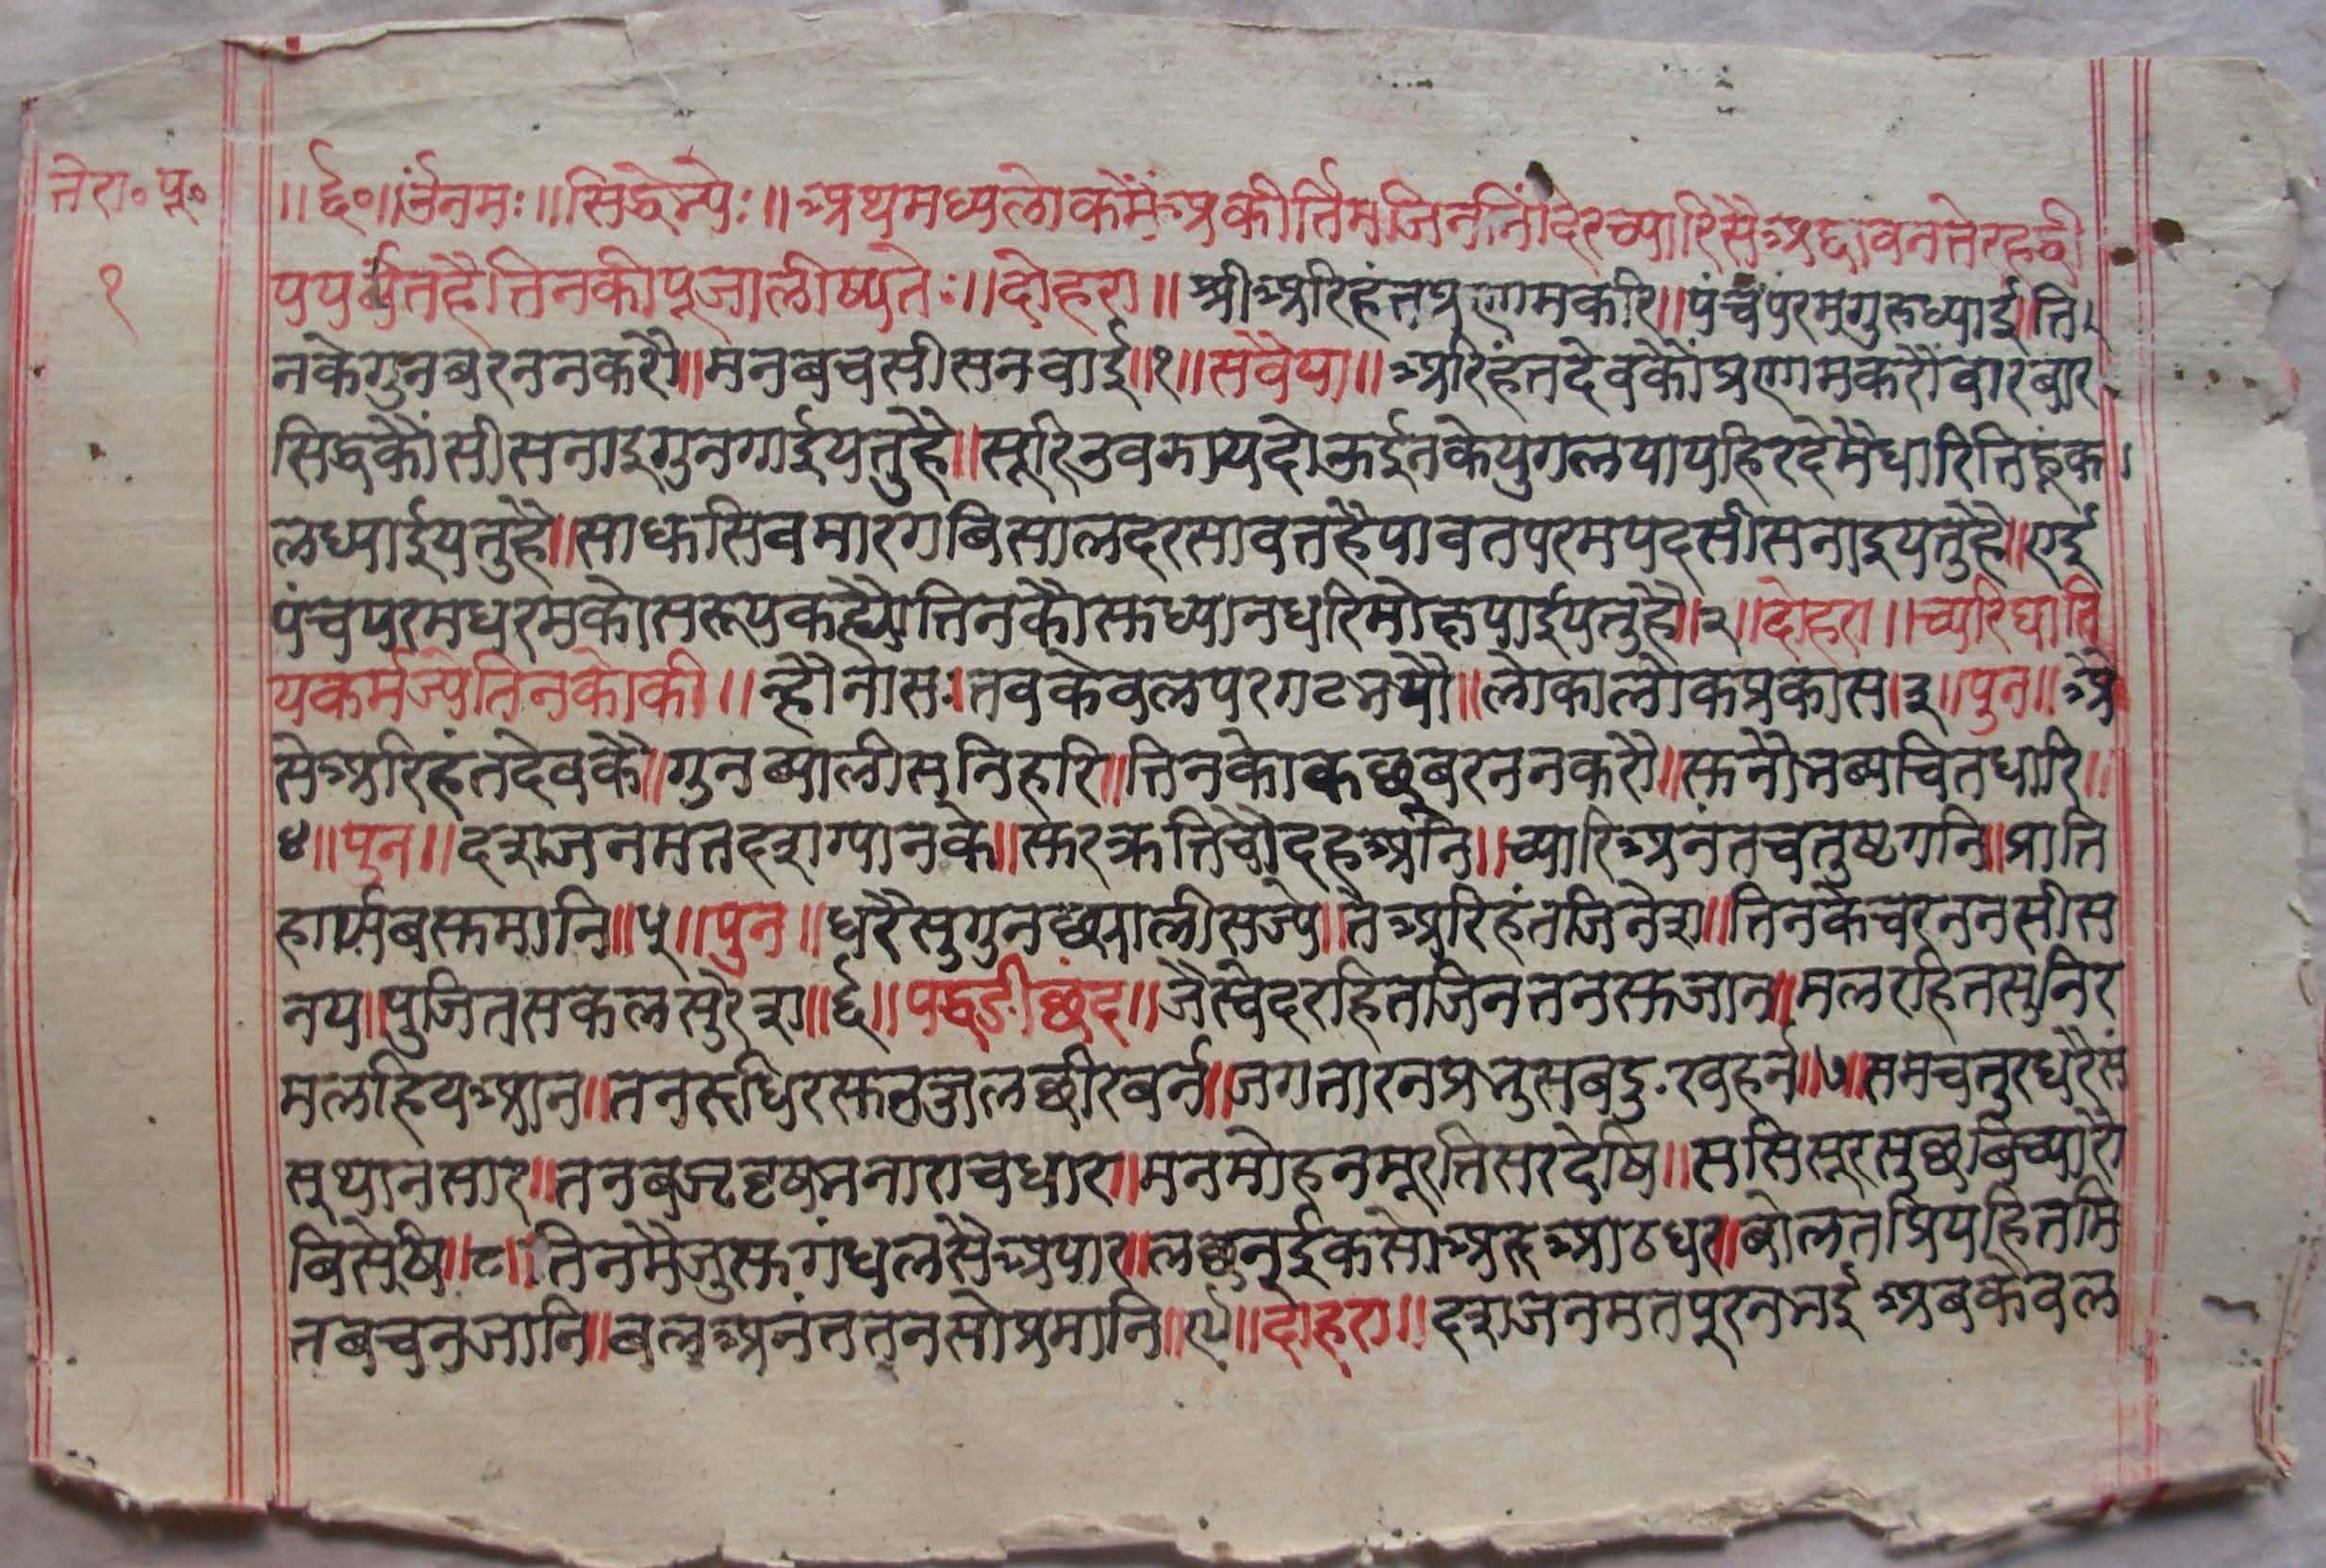 तेरा॰ पू॰
१
॥र्द्द॰॥ ॐनमः॥सिद्धेभ्यः॥अथमध्यलोकमैंअकीर्त्तिमजिनमिंदिरच्यारिसैअट्ठावनतेरहद्वी
पपर्यंतहैतिनकीपूजालीष्यते॥दोहरा॥श्रीअरिहंतप्रणामकरि॥पंचपरमगुरूध्याई॥ति
नकेगुनबरननकरौ॥मनबचसीसनवाई॥१॥सवैया॥अरिहंतदेवकौंप्रणामकरौंवारबार
सिद्धकौंसीसनाइगुनगाईयतुहै॥सूरिउवझायदोऊईनकेयुगलपायहिरदेमैधारितिहूंका
लध्याईयतुहै॥साधुसिवमारगबिसालदरसावतहैपावतपरमपदसीसनाइयतुहै॥एई
पंचपरमधरमकोसरूपकह्यौतिनकौसुध्यानधरिमोक्षपाईयतुहै॥२॥दोहरा॥च्यारिघाति
यकर्मज्येतिनकोकी॥न्हौनास॥तवकेवलपरगटभयौ॥लोकालोकप्रकास॥३॥पुन॥अै
सेअरिहंतदेवकै॥गुनब्यालीसनिहारि॥तिनकोकछूबरननकरौ॥सुनौभब्यचितधारि॥
४॥पुन॥दशजनमतदशग्यानके॥सुरक्रतिचौदहआनि॥च्यारिअनंतचतुष्टगनि॥प्राति
हार्यसबसुमानि॥५॥पुन॥धरैसुगुनछ्यालीसज्ये॥तैअरिहंतजिनेश॥तिनकैचरननसीस
नय॥पुजितसकलसुरेश॥६॥पद्धडीछंद॥जैस्वेदरहितजिनतनसुजान॥मलरहितसुनिर
मलहियआन॥तनरुधिरसुउज्जलछीरबर्न॥जगतारनप्रभुसबदुःखहर्न॥७॥समचतुरधरैसं
सथानसार॥तनबज्रवृषभनाराचधार॥मनमोहनमूरतिसरदेषि॥ससिसूरसुछबिच्यारौ
बिसेषि॥८॥तिनमैजुसुगंधलसैअपार॥लछनईकसोअरुआठधर॥बोलतप्रियहितमि
तबचनजानि॥बलअनंततनसोप्रमानि॥९॥दोहरा॥दशजनमतपूरनभईअबकेवल